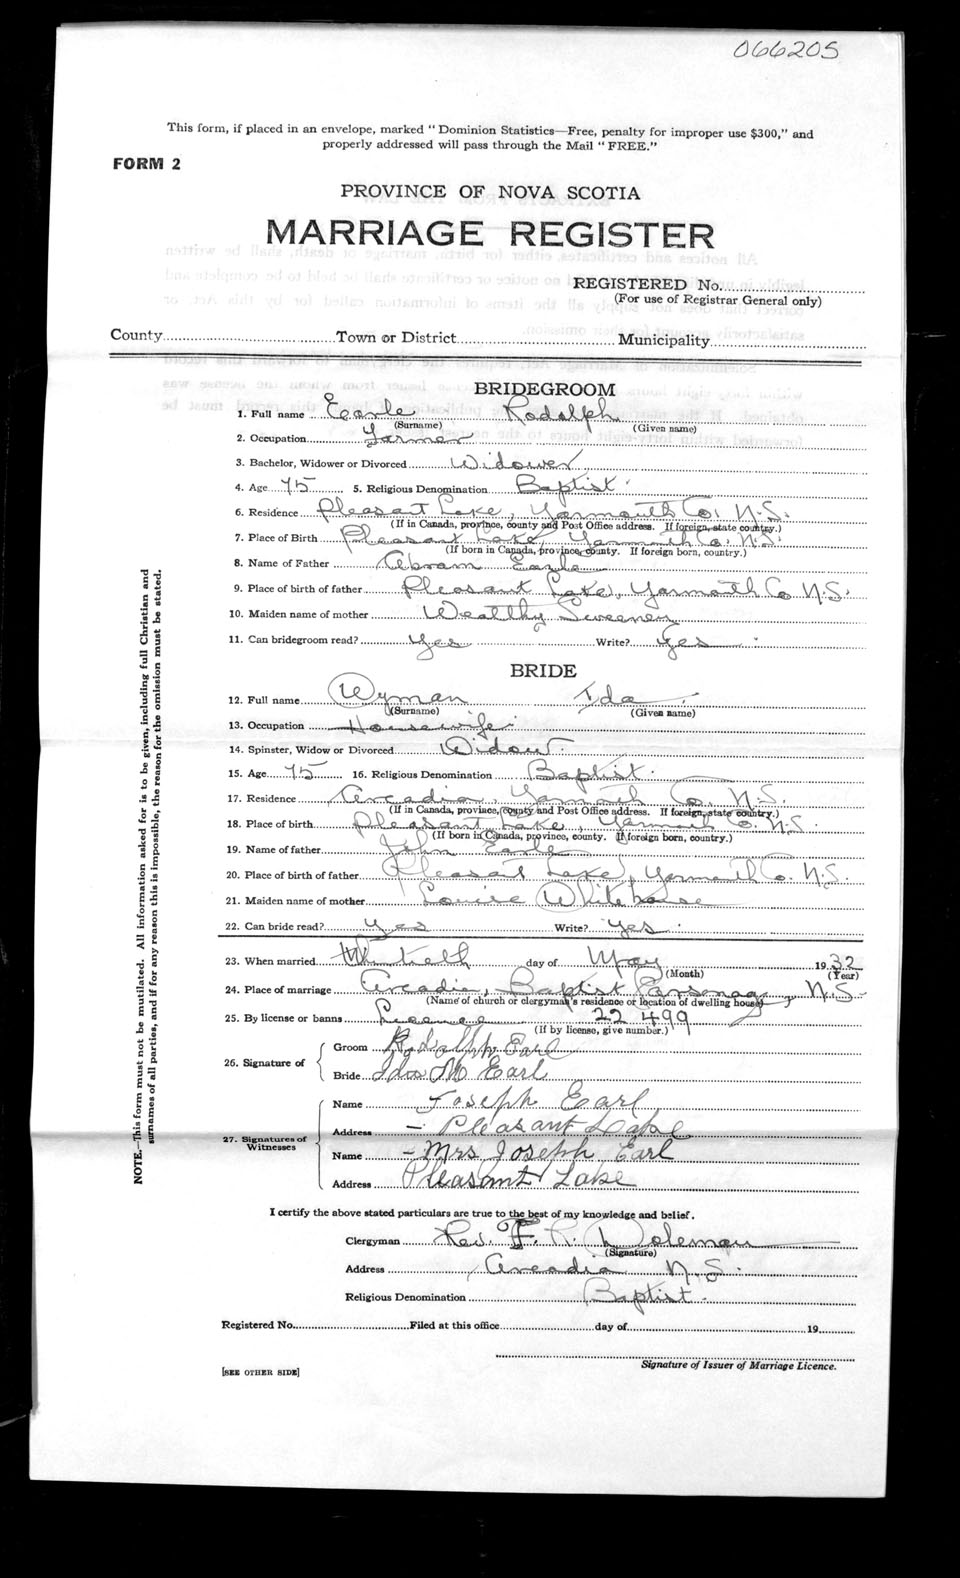 066205
This form, if placed in an envelope, marked "Dominion Statistics—Free, penalty for improper use $300," and
properly addressed will pass through the Mail "FREE."
FORM 2
PROVINCE OF NOVA SCOTIA
MARRIAGE REGISTER
REGISTERED No.
(For use of Registrar General only)
County Town or District Municipality
BRIDEGROOM
1. Full name Earle Rodolph
(Surname) (Given name)
2. Occupation Farmer
3. Bachelor, Widower or Divorced Widower
4. Age 75 5. Religious Denomination Baptist
6. Residence Pleasant Lake, Yarmouth Co. N.S.
(If in Canada, province, county and Post Office address. If foreign, state country.)
7. Place of Birth Pleasant Lake, Yarmouth Co. N.S.
(If born in Canada, province, county. If foreign born, country.)
8. Name of Father Abram Earle
9. Place of birth of father Pleasant Lake, Yarmouth Co N.S.
10. Maiden name of mother Wealthy Sweeney
11. Can bridegroom read? Yes Write? Yes
BRIDE
12. Full name Wyman Ida
(Surname) (Given name)
13. Occupation Housewife
14. Spinster, Widow or Divorced Widow
15. Age 75 16. Religious Denomination Baptist
17. Residence Arcadia, Yarmouth Co. N.S.
(If in Canada, province, county and Post Office address. If foreign, state country.)
18. Place of birth Pleasant Lake, Yarmouth Co. N.S.
(If born in Canada, province, county. If foreign born, country.)
19. Name of father John Earle
20. Place of birth of father Pleasant Lake, Yarmouth Co. N.S.
21. Maiden name of mother Louise Whitehouse
22. Can bride read? Yes Write? Yes
23. When married day of May 1932
(Month) (Year)
24. Place of marriage Arcadia, Baptist Parsonage, N.S.
(Name of church or clergyman's residence or location of dwelling house)
25. By license or banns License 22499
(if by license, give number.)
26. Signature of
Groom Rodolph Earl
Bride Ida M Earl
27. Signatures of Witnesses
Name Joseph Earl
Address – Pleasant Lake
Name – Mrs Joseph Earl
Address Pleasant Lake
I certify the above stated particulars are true to the best of my knowledge and belief.
Clergyman Rev. F. R. Doleman
(Signature)
Address Arcadia N.S.
Religious Denomination Baptist.
Registered No. Filed at this office day of 19
Signature of Issuer of Marriage Licence.
[SEE OTHER SIDE]
NOTE.—This form must not be mutilated. All information asked for is to be given, including full Christian and
surnames of all parties, and if for any reason this is impossible, the reason for the omission must be stated.